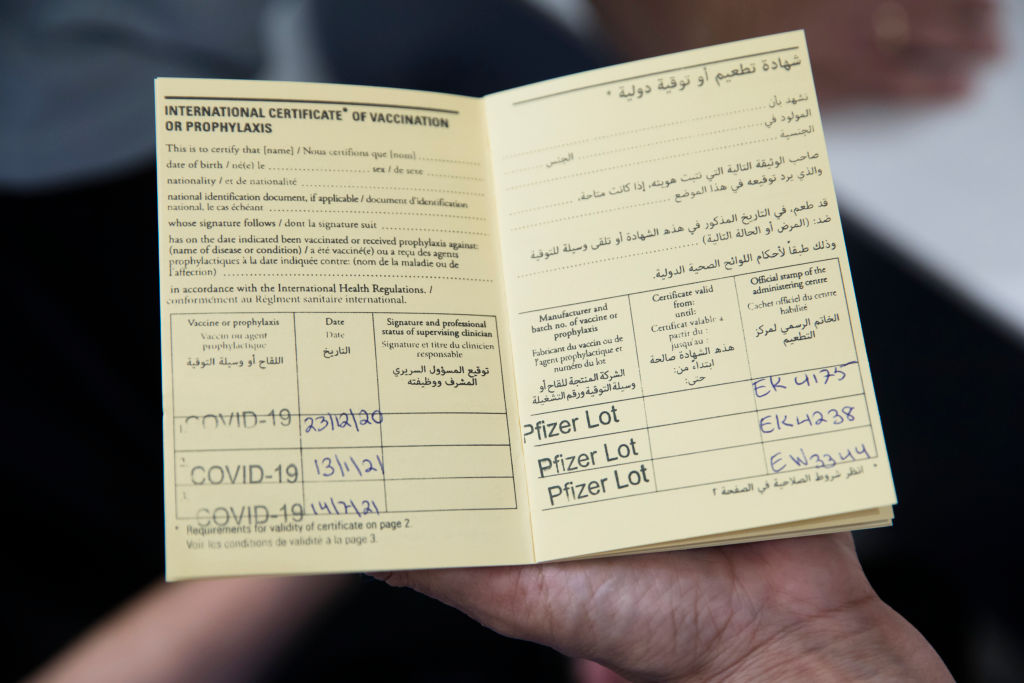 INTERNATIONAL CERTIFICATE* OF VACCINATION
OR PROPHYLAXIS
This is to certify that [name] / Nous certifions que [nom] ............
date of birth / né(e) le ............ sex / de sexe ............
nationality / et de nationalité ............
national identification document, if applicable / document d'identification
national, le cas échéant ............
whose signature follows / dont la signature suit ............
has on the date indicated been vaccinated or received prophylaxis against:
(name of disease or condition) / a été vacciné(e) ou a reçu des agents
prophylactiques à la date indiquée contre: (nom de la maladie ou de
l'affection) ............
in accordance with the International Health Regulations. /
conformément au Règlment sanitaire international.
Vaccine or prophylaxis
Vaccin ou agent
prophylactique
اللقاح أو وسيلة التوقية
Date
Date
التاريخ
Signature and professional
status of supervising clinician
Signature et titre du clinicien
responsable
توقيع المسؤول السريري
المشرف ووظيفته
1. COVID-19 23/12/20
2. COVID-19 13/1/21
3. COVID-19 14/7/21
* Requirements for validity of certificate on page 2.
Voir les conditions de validité à la page 3.
شهادة تطعيم أو توقية دولية *
نشهد بأن ............
المولود في ............ الجنس ............
الجنسية ............
صاحب الوثيقة التالية التي تثبت هويته، إذا كانت متاحة، ............
والذي يرد توقيعه في هذا الموضع ............
قد طعم، في التاريخ المذكور في هذه الشهادة أو تلقى وسيلة للتوقية
ضد: (المرض أو الحالة التالية) ............
وذلك طبقاً لأحكام اللوائح الصحية الدولية.
Manufacturer and
batch no. of vaccine or
prophylaxis
Fabricant du vaccin ou de
l'agent prophylactique et
numéro du lot
الشركة المنتجة للقاح أو
وسيلة التوقية ورقم التشغيلة
Certificate valid
from:
until:
Certificat valable à
partir du :
jusqu'au :
هذه الشهادة صالحة
ابتداءً من:
حتى:
Official stamp of the
administering centre
Cachet officiel du centre
habilité
الخاتم الرسمي لمركز
التطعيم
Pfizer Lot EK 4175
Pfizer Lot EK4238
Pfizer Lot EW3344
* انظر شروط الصلاحية في الصفحة ٢